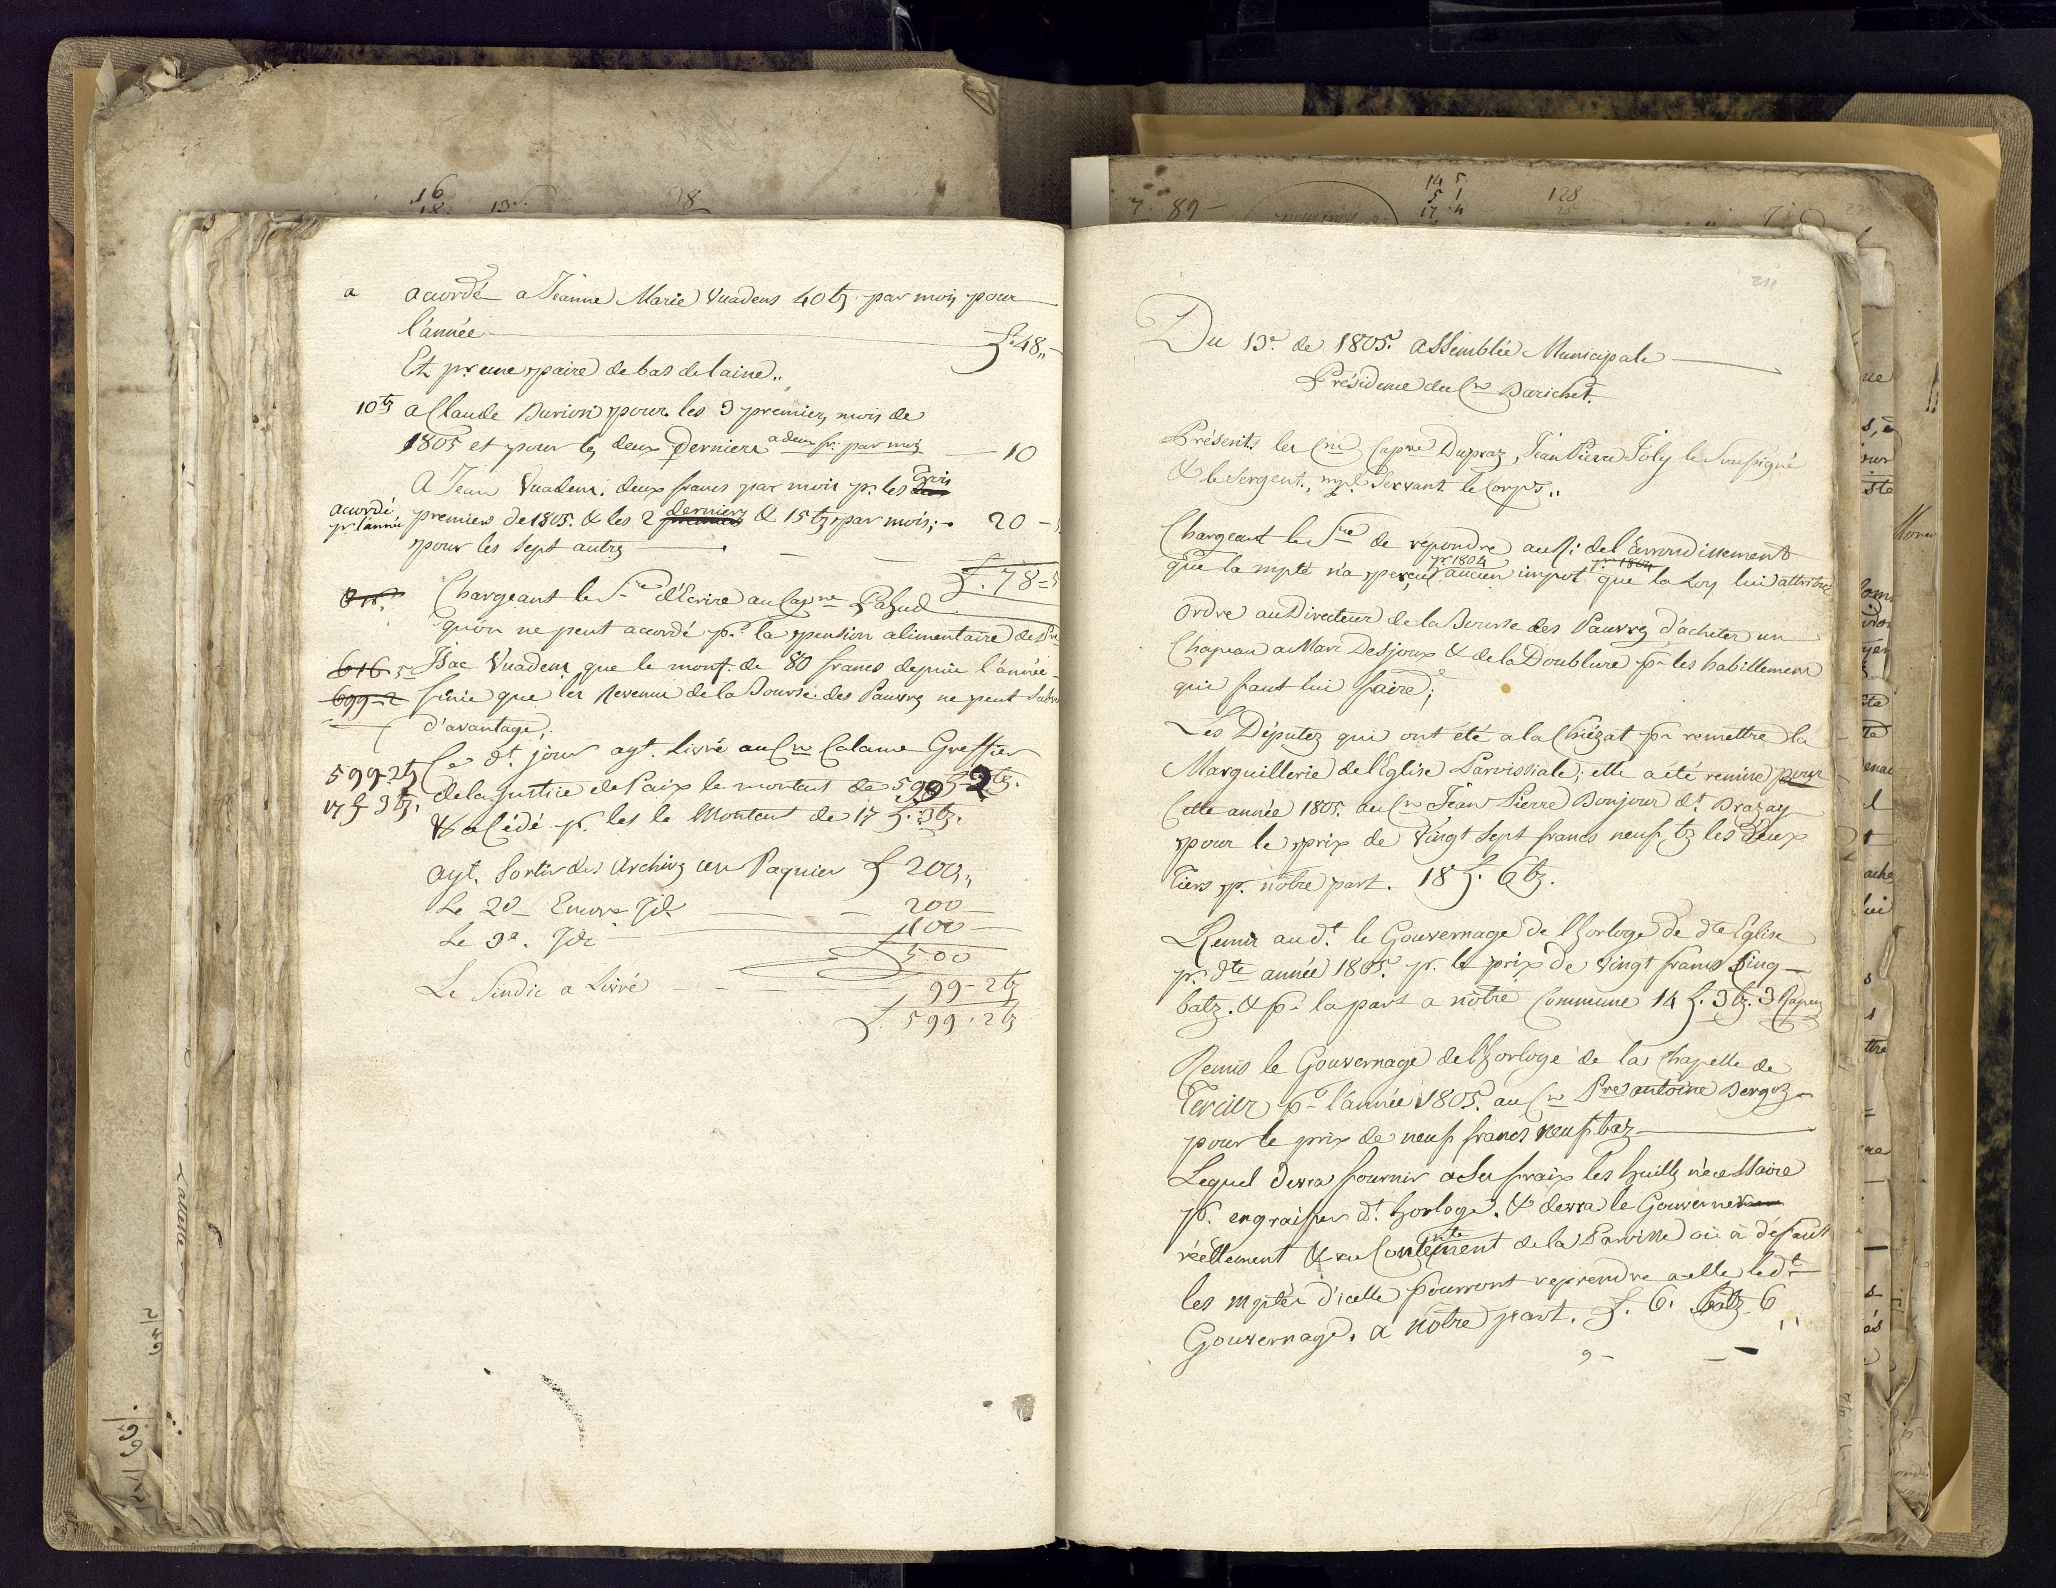 a acordé a Jeanne Marie Vuadens 40 bz par mois pour
l'année f. 48 "
Et pr une paire de bas de laine "
10 bz a Claude Burion pour les 3 premiers mois de
1805 et pour les deux derniers a deux fr. par mois 10
A Jean Vuadens deux francs par mois pr les trois
acordé pr l'année premiers de 1805. & les 2 derniers & 15 bz par mois; 20
pour les sept autres
f. 78
Chargeant le Sre d'Ecrire au Capne Pahud
qu'on ne peut acordé pr la pension alimentaire de
616 5 Isac Vuadens que le mont. de 80 francs depuis l'année
699-2 finie que les Revenus de la Bourse des Pauvres ne peut
d'avantage,
599-2 bz Ce dt jour ayt. Livré au Cn Calame Greffier
17 f 3 bz. de la Justice de Paix le montant de 599 2 bz.
& a Cédé pr les le Montant de 17 f. 3 bz.
ayt. Sortir des Archives un Paquier f 200 "
Le 2d Encore Id. 200
Le 3e. Idi 100
500
Le Sindic a Livré 99-2 bz
f. 599-2 bz
211
Du 13e. de 1805. assemblée Municipale
Présidence du Cn Barichet.
Présents les Cns Capne Dupraz, Jean Pierre Joly le Soussigné
& le Sergent, mpl Servant le Corps "
Chargeant le Sre de répondre au de l'Arrondissement
pr 1804 pr 1804
Que la mpté n'a perçut aucun impot que la Loy lui attribue
Ordre au Directeur de la Bourse des Pauvres d'acheter un
Chapeau a Marc Desjoux & de la Doublure pr les habillement
qui faut lui faire;
Les Députez qui ont été a la Chiézat pr remettre la
Marguillerie de l'Eglise Parroissiale; elle a été remise pour
Cette année 1805. au Cn Jean Pierre Bonjour dt. Brazay
pour le prix de vingt sept francs neuf bz les Deux
Tiers pr. nôtre part. 18 f. 6 bz.
Remis au dt. le Gouvernage de l'horloge de dte Eglise
pr. dte année 1805. pr. le prix de vingt francs Cinq
batz. & pr la part a nôtre Commune 14 f. 3 bz. 3 Rapes
Remis le Gouvernage de l'horloge de la Chapelle de
Tercier pr l'année 1805. au Cn Pre antoine Bergoz
pour le prix de neuf francs neuf baz
Lequel devra fournir a Ses fraix les huilles nécessaire
pr. engraisser dt. horloge. & devra le Gouverner
réellement & au Contentement de la Parroisse où à défaut
les mptés d'icelle pourront reprendre a elle le dt
Gouvernage. a nôtre part. f. 6. batz 6 "